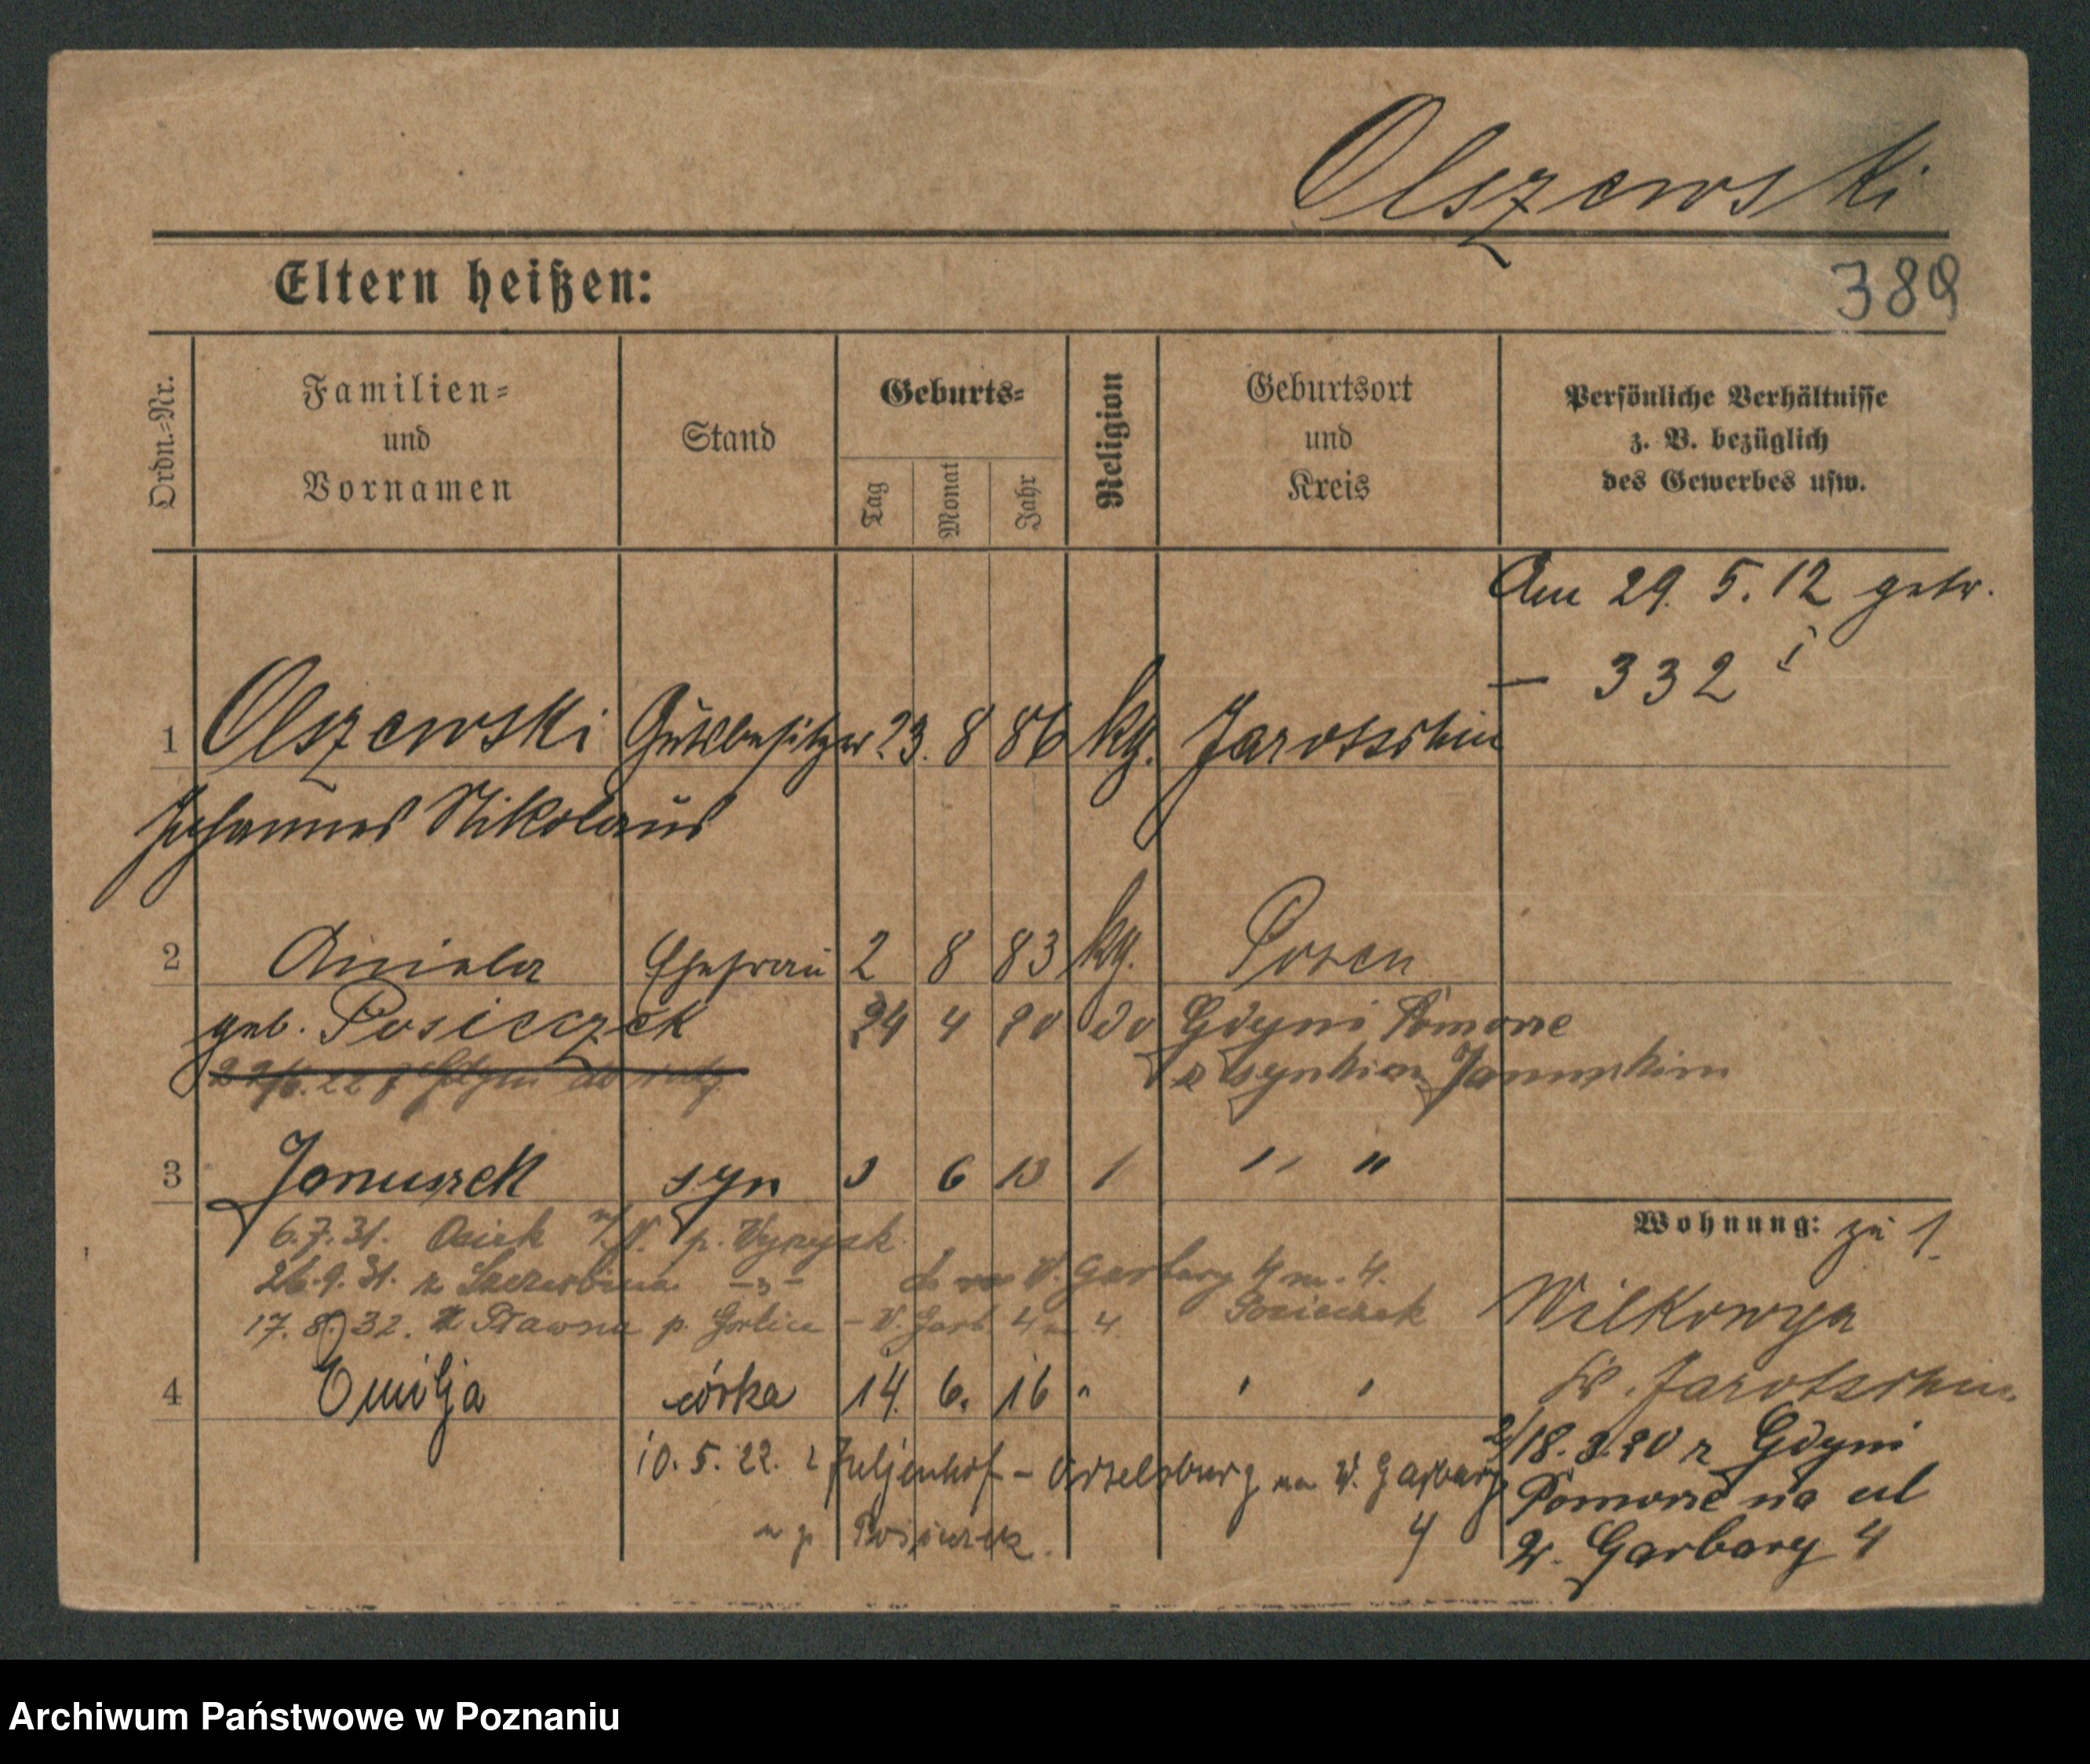 Olszewski
Eltern heißen:
389
Ordn.-Nr.
Familien-
und
Vornamen
Stand
Geburts-
Tag
Monat
Jahr
Religion
Geburtsort
und
Kreis
Persönliche Verhältnisse
z. B. bezüglich
des Gewerbes usw.
Am 29. 5. 12 getr.
– 332
1 Olszewski Gutsbesitzer 23. 8 86 kg. Jarotschin
Johannes Nikolaus
2 Aniela Ehefrau 2 8 83 kg. Posen
geb. Posieczek 24 4 20 do Gdyni Pomorze
z synkiem Januszkim
3 Januszek syn 3 6 13 1 " "
6.7.31. Osiek n/N. p. Wyrzysk
26.9.31. z -„- do W. Garbary 4 m. 4.
17. 8. 32. p. Gorlice – W. Garb. 4 m 4. Posieczek
4 Emilja córka 14. 6. 16 " " "
10. 5. 22. z Juljenhof – Ortelsburg na W. Garbary
4
u p. Posieczek.
Wohnung: zu 1.
Wilkowya
Kr. Jarotschin
2/18. 3. 20 z Gdyni
Pomorze na ul
W. Garbary 4
Archiwum Państwowe w Poznaniu